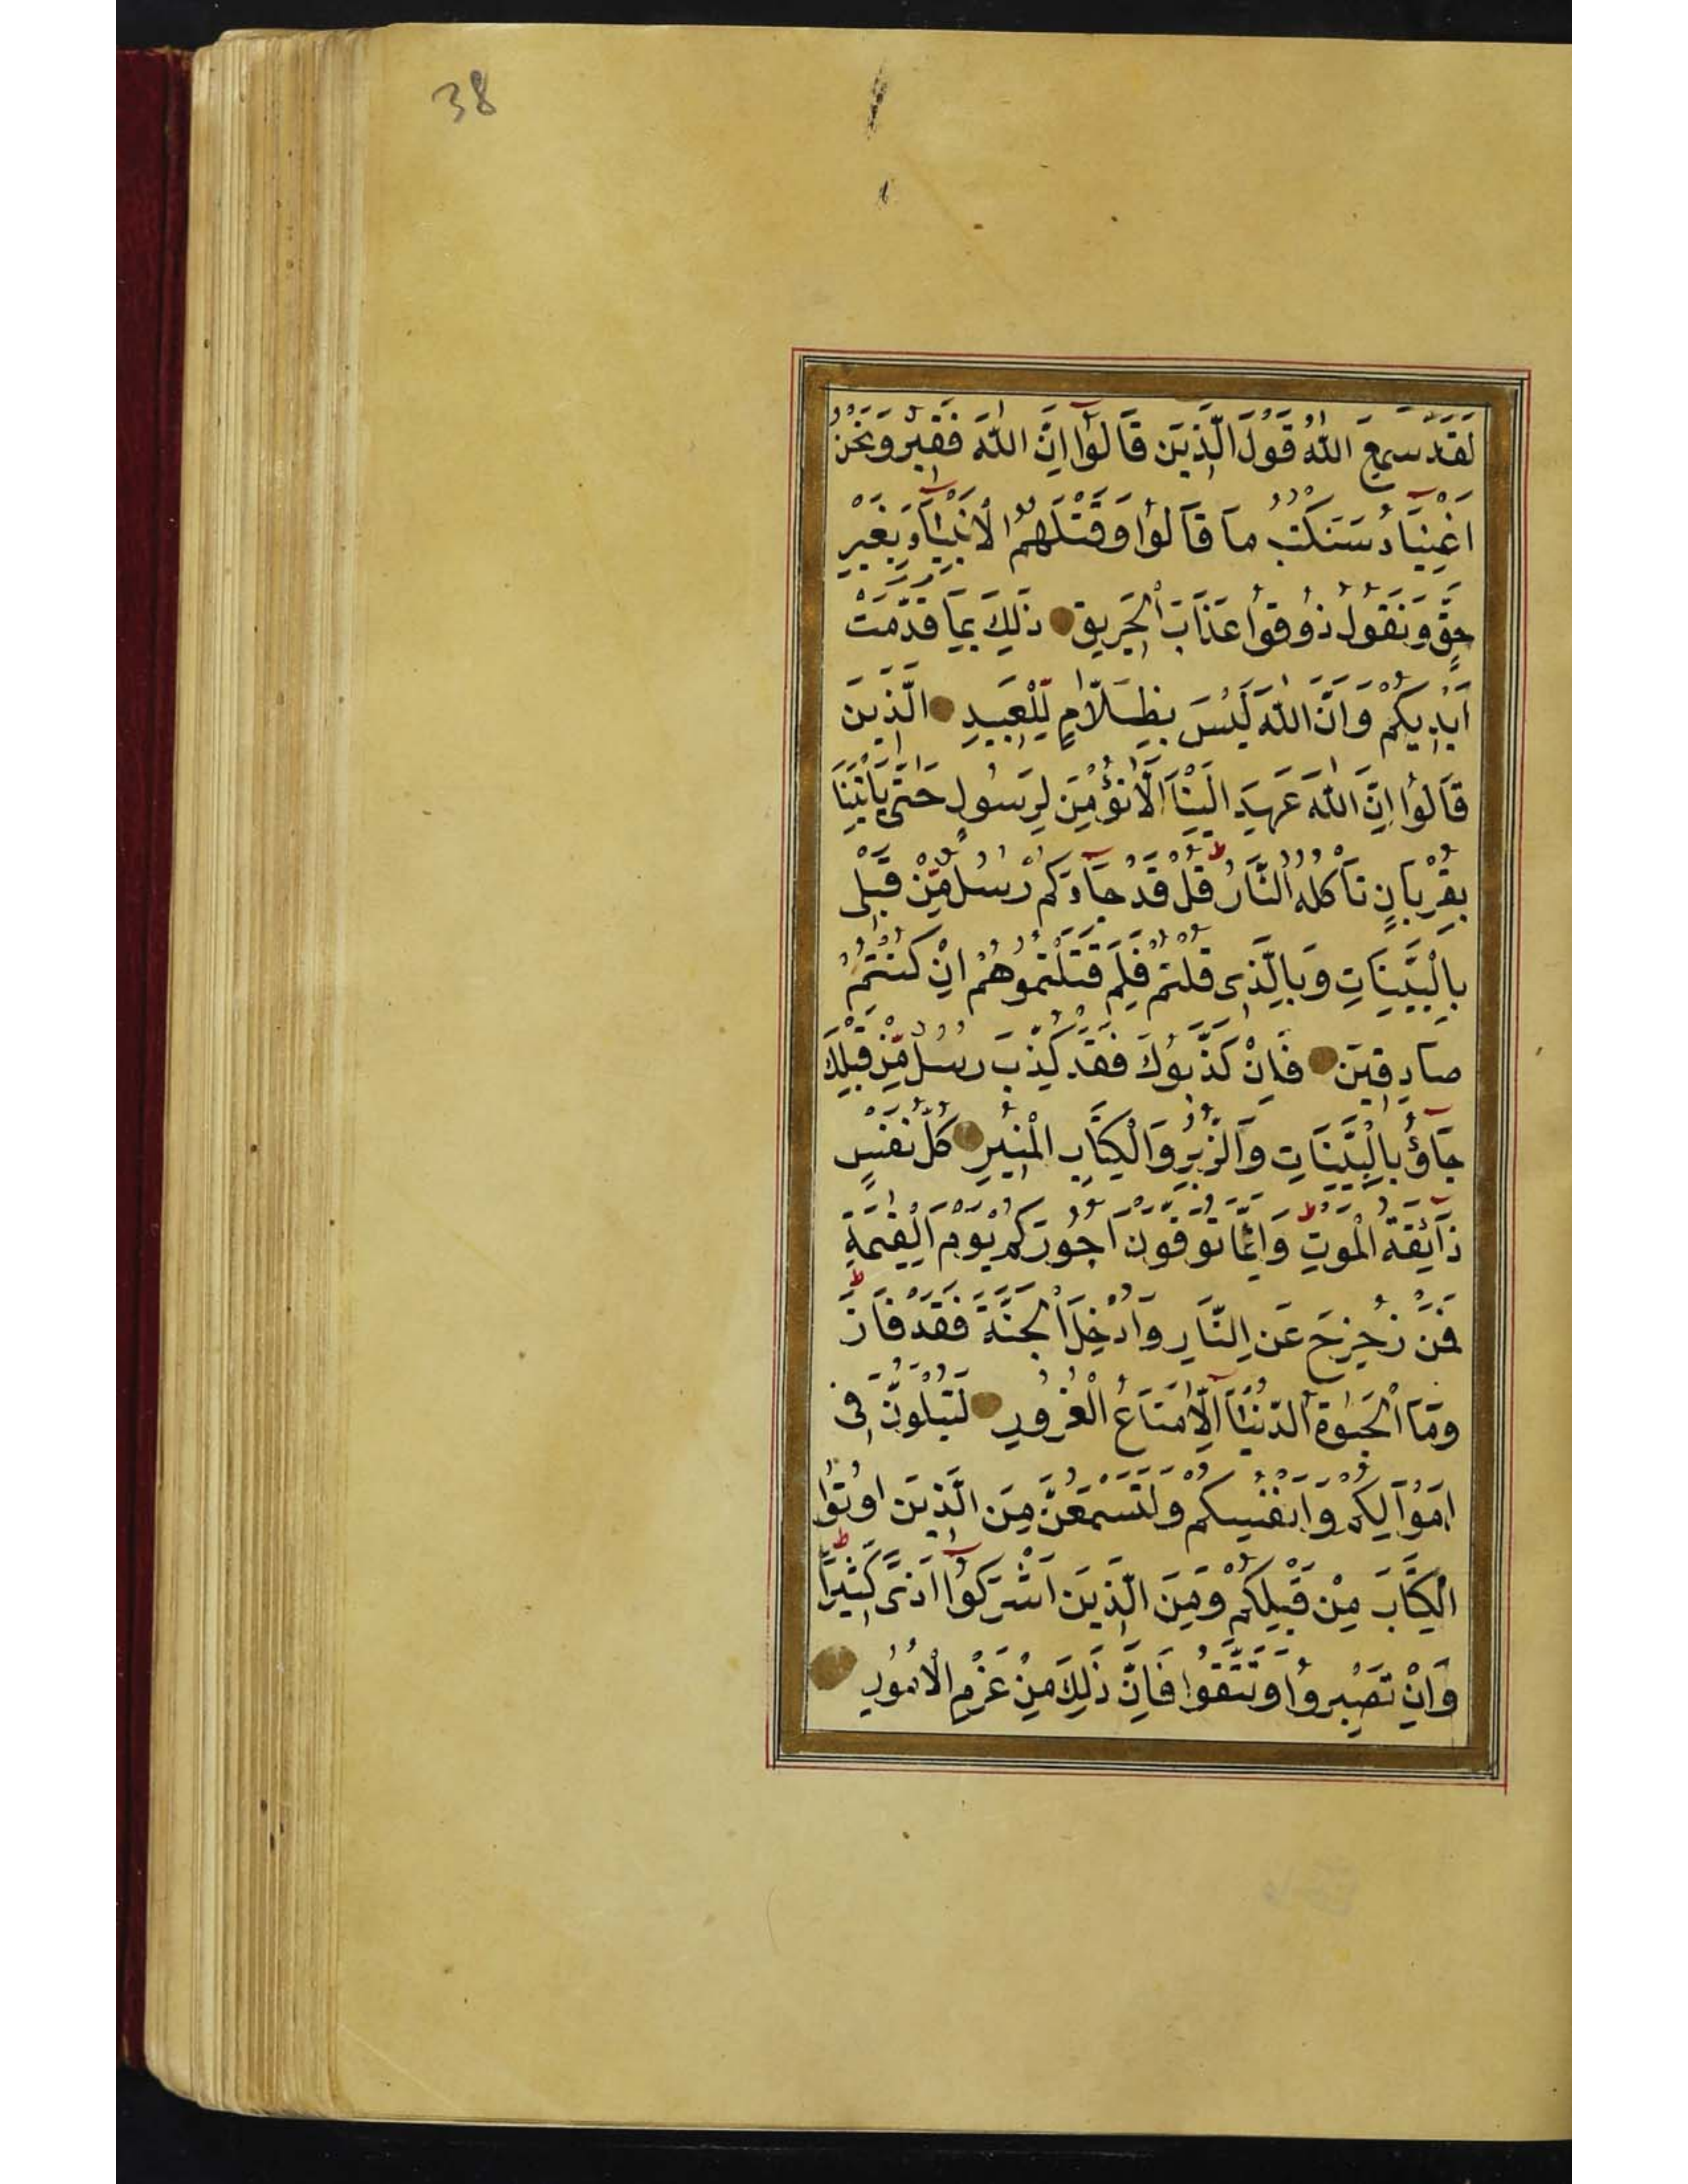 38
لَقَدْ سَمِعَ اللّٰهُ قَوْلَ الَّذِينَ قَالُوٓا اِنَّ اللّٰهَ فَقِيرٌ وَنَحْنُ
اَغْنِيَآءُ سَنَكْتُبُ مَا قَالُوا وَقَتْلَهُمُ الْاَنْبِيَآءَ بِغَيْرِ
حَقٍّ وَنَقُولُ ذُوقُوا عَذَابَ الْحَرِيقِ ذٰلِكَ بِمَا قَدَّمَتْ
اَيْدِيكُمْ وَاَنَّ اللّٰهَ لَيْسَ بِظَلَّامٍ لِلْعَبِيدِ الَّذِينَ
قَالُوٓا اِنَّ اللّٰهَ عَهِدَ اِلَيْنَا اَلَّا نُؤْمِنَ لِرَسُولٍ حَتّٰى يَاْتِيَنَا
بِقُرْبَانٍ تَاْكُلُهُ النَّارُ ط قُلْ قَدْ جَآءَكُمْ رُسُلٌ مِّنْ قَبْلِى
بِالْبَيِّنَاتِ وَبِالَّذِى قُلْتُمْ فَلِمَ قَتَلْتُمُوهُمْ اِنْ كُنْتُمْ
صَادِقِينَ فَاِنْ كَذَّبُوكَ فَقَدْ كُذِّبَ رُسُلٌ مِّنْ قَبْلِكَ
جَآؤُ بِالْبَيِّنَاتِ وَالزُّبُرِ وَالْكِتَابِ الْمُنِيرِ كُلُّ نَفْسٍ
ذَآئِقَةُ الْمَوْتِ ط وَاِنَّمَا تُوَفَّوْنَ اُجُورَكُمْ يَوْمَ الْقِيٰمَةِ ط
فَمَنْ زُحْزِحَ عَنِ النَّارِ وَاُدْخِلَ الْجَنَّةَ فَقَدْ فَازَ
وَمَا الْحَيٰوةُ الدُّنْيَآ اِلَّا مَتَاعُ الْغُرُورِ لَتُبْلَوُنَّ فِى
اَمْوَالِكُمْ وَاَنْفُسِكُمْ وَلَتَسْمَعُنَّ مِنَ الَّذِينَ اُوتُوا
الْكِتَابَ مِنْ قَبْلِكُمْ وَمِنَ الَّذِينَ اَشْرَكُوٓا اَذًى كَثِيرًا ط
وَاِنْ تَصْبِرُوا وَتَتَّقُوا فَاِنَّ ذٰلِكَ مِنْ عَزْمِ الْاُمُورِ